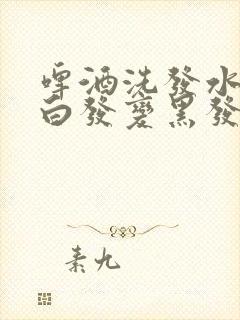 啤酒洗發水
白發變黑發
素九